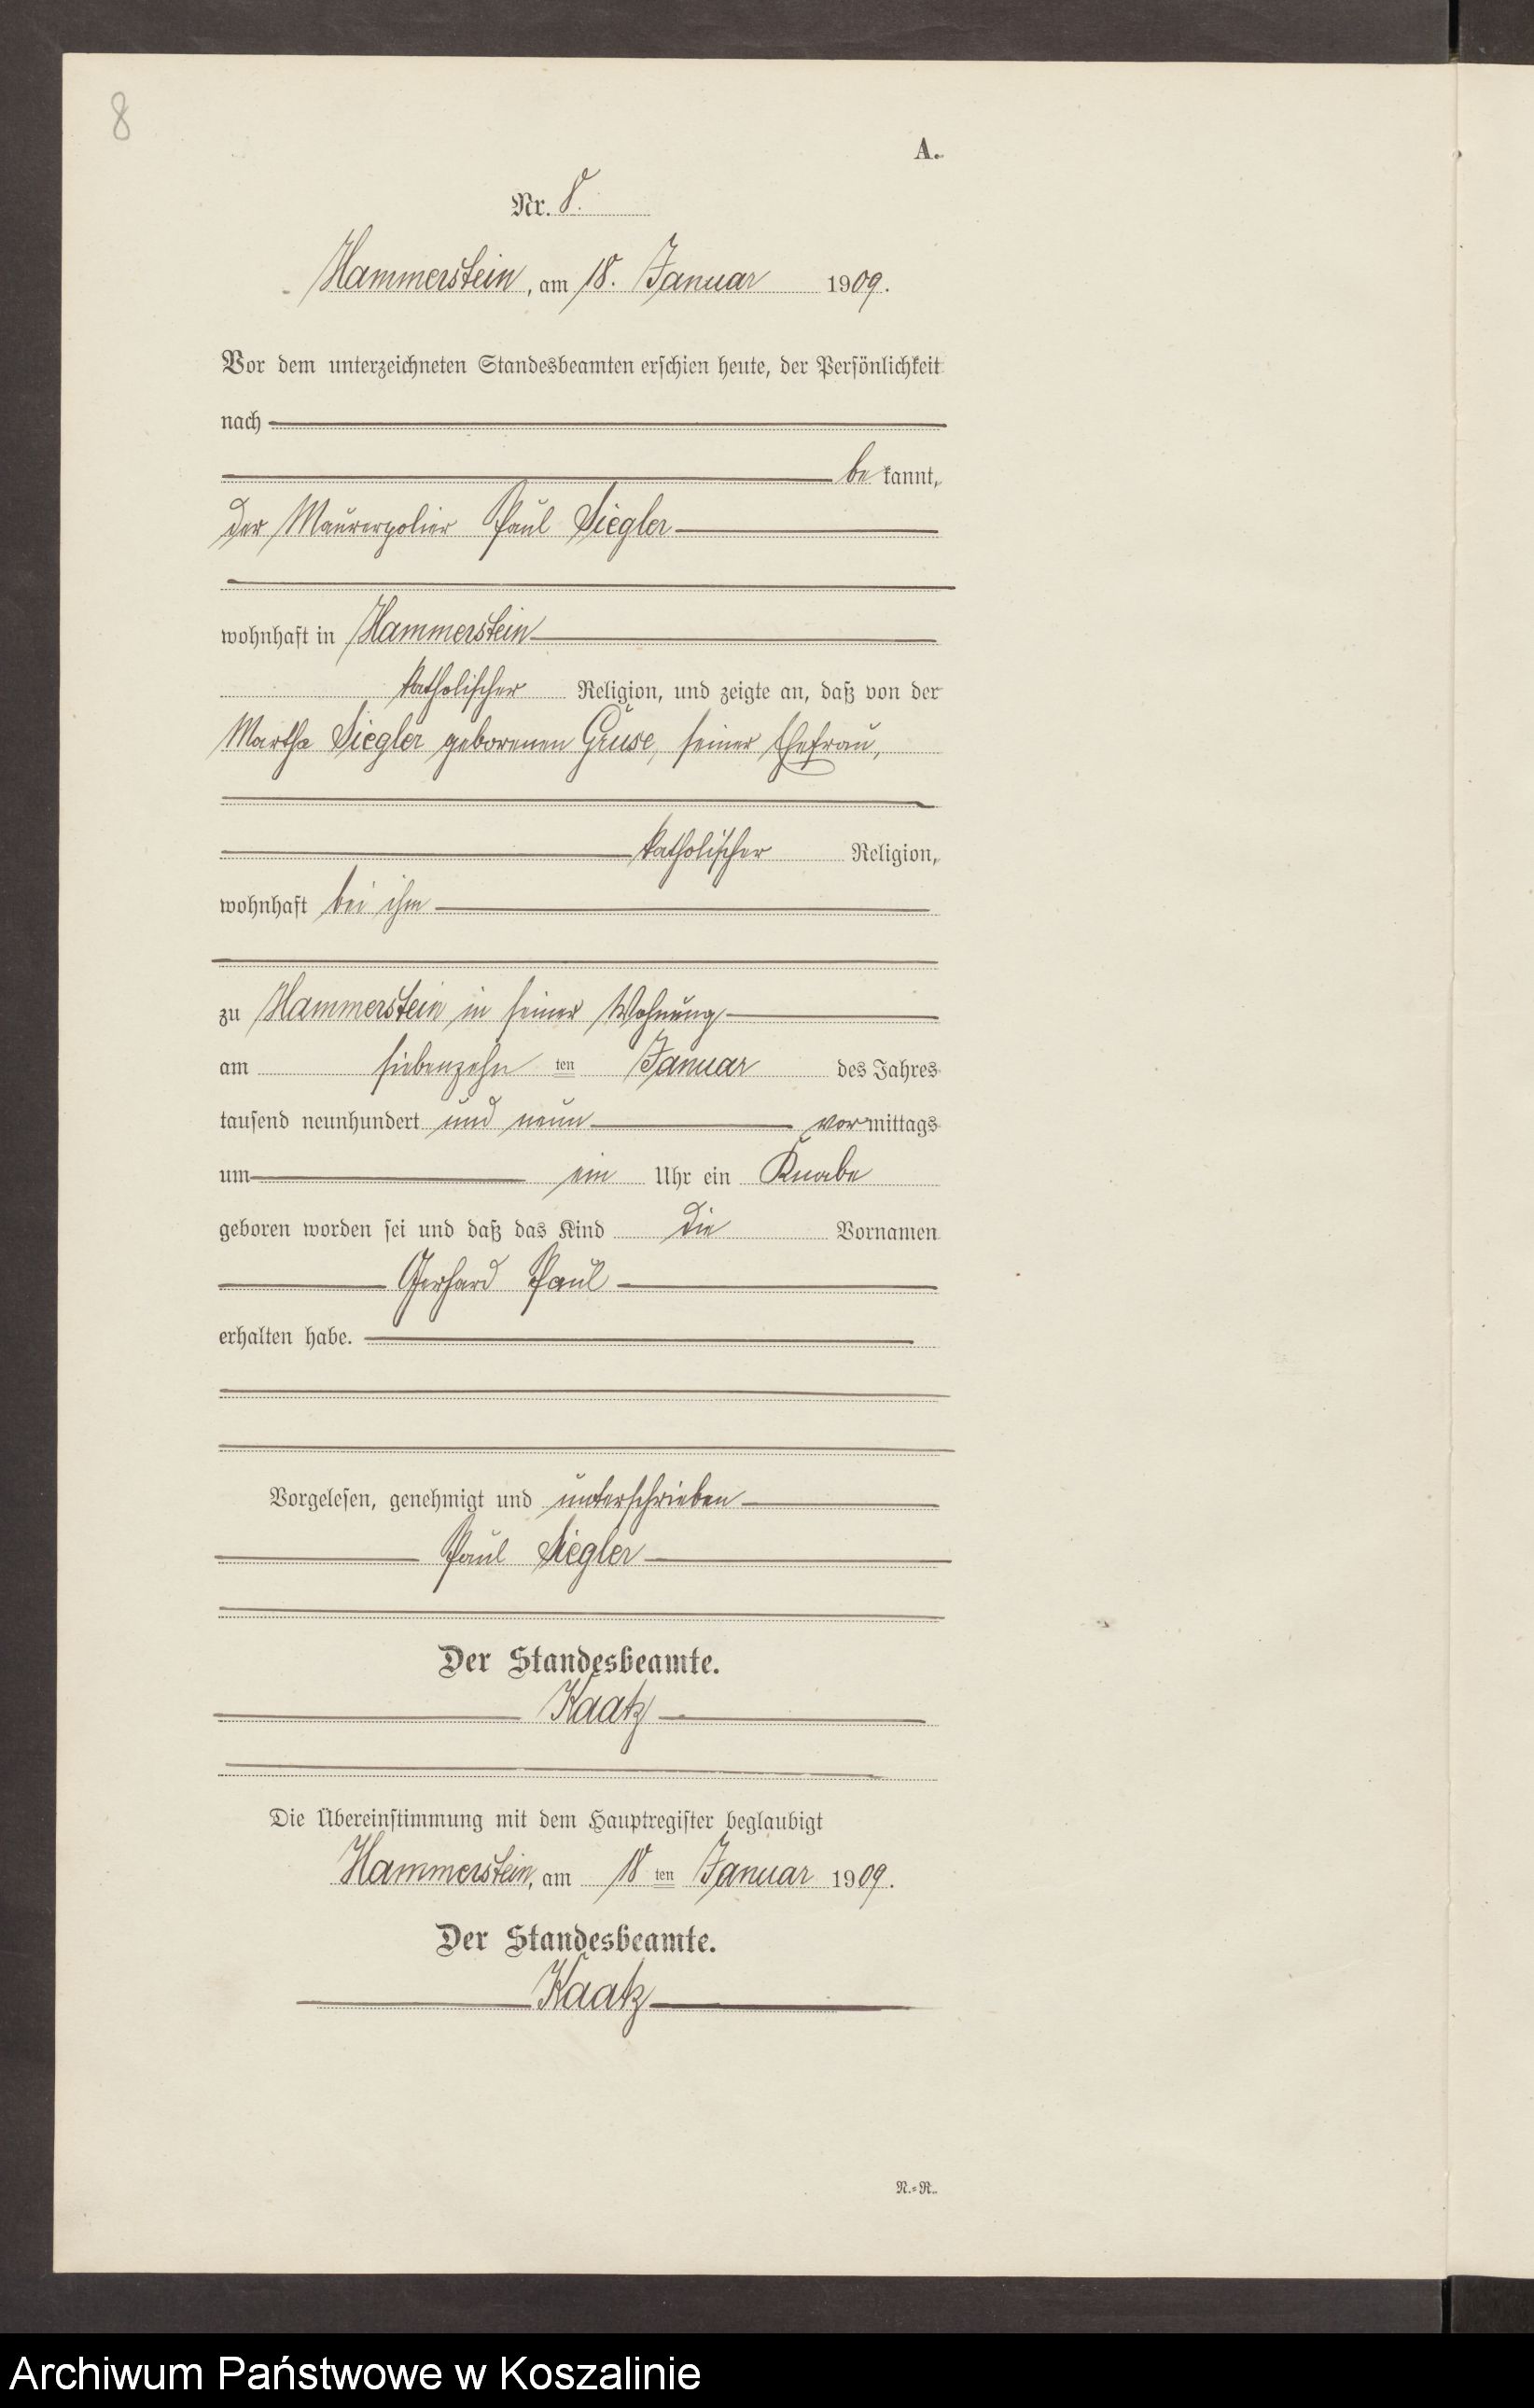 8
A.
Nr. 8.
Hammerstein, am 18. Januar 1909.
Vor dem unterzeichneten Standesbeamten erschien heute, der Persönlichkeit
nach
be kannt,
der Maurerpolier Paul Siegler
wohnhaft in Hammerstein
katholischer Religion, und zeigte an, daß von der
Martha Siegler geborenen Gruse, seiner Ehefrau,
katholischer Religion,
wohnhaft bei ihm
zu Hammerstein in seiner Wohnung
am siebenzehn ten Januar des Jahres
tausend neunhundert und neun vormittags
um ein Uhr ein Knabe
geboren worden sei und daß das Kind die Vornamen
Gerhard Paul
erhalten habe.
Vorgelesen, genehmigt und unterschrieben
Paul Siegler
Der Standesbeamte.
Kaatz
Die Übereinstimmung mit dem Hauptregister beglaubigt
Hammerstein, am 18 ten Januar 1909.
Der Standesbeamte.
Kaatz
N.=R.
Archiwum Państwowe w Koszalinie